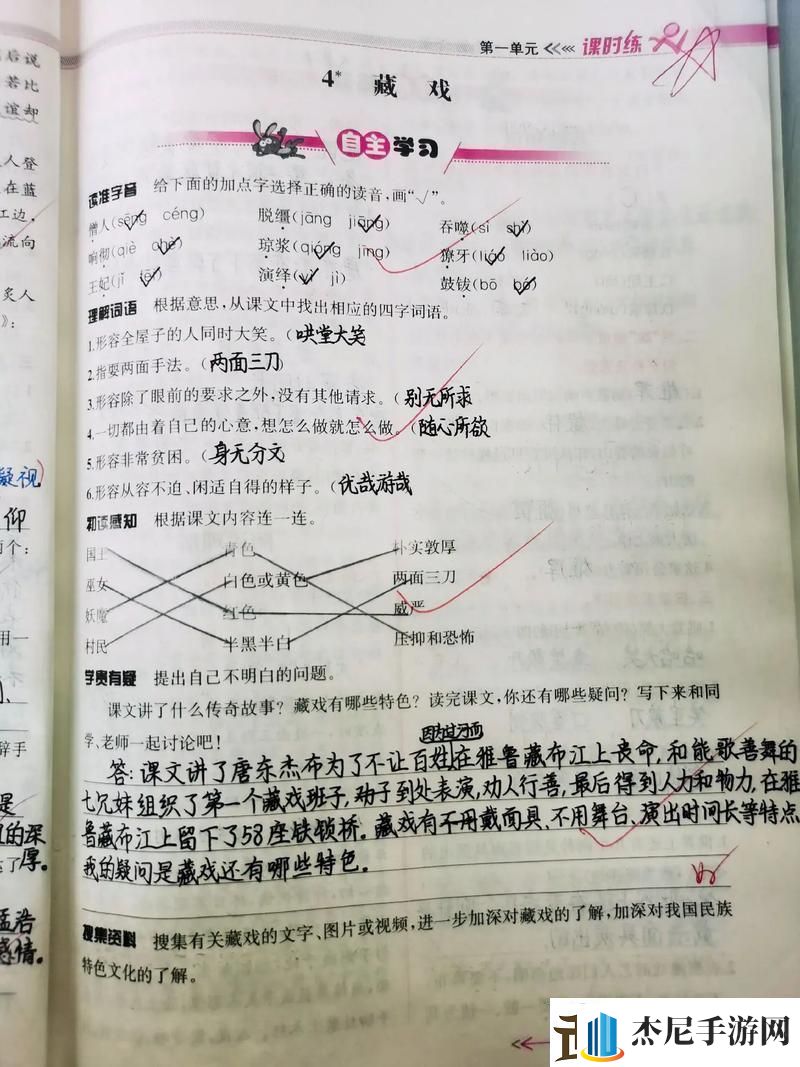 第一单元 课时练
4* 藏戏
自主学习
读准字音 给下面的加点字选择正确的读音,画“√”。
僧人(sēng céng) 脱缰(jāng jiāng) 吞噬(sì shì)
响彻(qiè chè) 琼浆(qióng jīng) 獠牙(liáo liào)
王妃(jǐ fēi) 演绎(yì jì) 鼓钹(bō bó)
理解词语 根据意思,从课文中找出相应的四字词语。
1.形容全屋子的人同时大笑。(哄堂大笑
2.指耍两面手法。(两面三刀)
3.形容除了眼前的要求之外,没有其他请求。(别无所求
4.一切都由着自己的心意,想怎么做就怎么做。(随心所欲
5.形容非常贫困。(身无分文
6.形容从容不迫、闲适自得的样子。(优哉游哉
初读感知 根据课文内容连一连。
国王 青色 朴实敦厚
巫女 白色或黄色 两面三刀
妖魔 红色 威严
村民 半黑半白 压抑和恐怖
学贵有疑 提出自己不明白的问题。
课文讲了什么传奇故事?藏戏有哪些特色?读完课文,你还有哪些疑问?写下来和同
学、老师一起讨论吧!
因为过河而
答:课文讲了唐东杰布为了不让百姓在雅鲁藏布江上丧命,和能歌善舞的
七兄妹组织了第一个藏戏班子,到处表演,劝人行善,最后得到人力和物力,在雅
鲁藏布江上留下了58座铁锁桥。藏戏有不用戴面具、不用舞台、演出时间长等特点
我的疑问是藏戏还有哪些特色。
搜集资料 搜集有关藏戏的文字、图片或视频,进一步加深对藏戏的了解,加深对我国民族
特色文化的了解。
后说
若比
谊却
人登
在蓝
江边,
流向
炙人
》:
凝视)
仰
两个:
用一
辞手
是
的深
厚。
孟浩
感情。
杰尼手游网